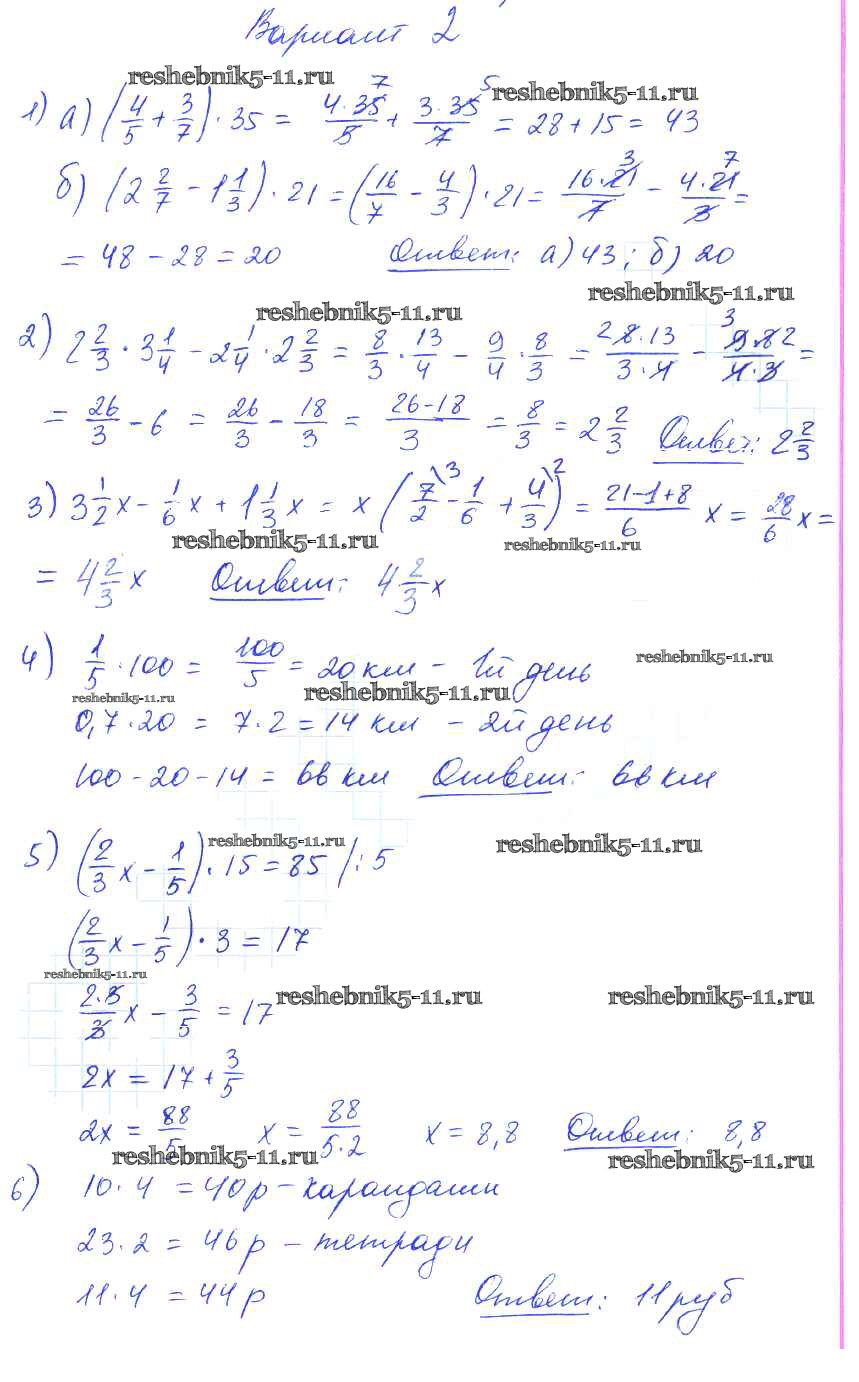 Вариант 2
reshebnik5-11.ru
reshebnik5-11.ru
1) а) (4/5 + 3/7) · 35 = 4·35/5 7 + 3·35/7 5 = 28 + 15 = 43
б) (2 2/7 - 1 1/3) · 21 = (16/7 - 4/3) · 21 = 16·21/7 3 - 4·21/3 7 =
= 48 - 28 = 20 Ответ: а) 43; б) 20
reshebnik5-11.ru
reshebnik5-11.ru
2) 2 2/3 · 3 1/4 - 2 1/4 · 2 2/3 = 8/3 · 13/4 - 9/4 · 8/3 = 2 8·13/3·4 - 3 9·8 2/4·3 =
= 26/3 - 6 = 26/3 - 18/3 = 26-18/3 = 8/3 = 2 2/3 Ответ: 2 2/3
3) 3 1/2 x - 1/6 x + 1 1/3 x = x (7/2 \3 - 1/6 + 4/3 \2) = 21-1+8/6 x = 28/6 x =
reshebnik5-11.ru
reshebnik5-11.ru
= 4 2/3 x Ответ: 4 2/3 x
4) 1/5 · 100 = 100/5 = 20 км - 1й день
reshebnik5-11.ru
reshebnik5-11.ru
reshebnik5-11.ru
0,7 · 20 = 7 · 2 = 14 км - 2й день
100 - 20 - 14 = 66 км Ответ: 66 км
reshebnik5-11.ru
reshebnik5-11.ru
5) (2/3 x - 1/5) · 15 = 85 /: 5
(2/3 x - 1/5) · 3 = 17
reshebnik5-11.ru
reshebnik5-11.ru
reshebnik5-11.ru
2·3/3 x - 3/5 = 17
2x = 17 + 3/5
2x = 88/5 x = 88/5·2 x = 8,8 Ответ: 8,8
reshebnik5-11.ru
reshebnik5-11.ru
6) 10 · 4 = 40 р - карандаши
23 · 2 = 46 р - тетради
11 · 4 = 44 р Ответ: 11 руб